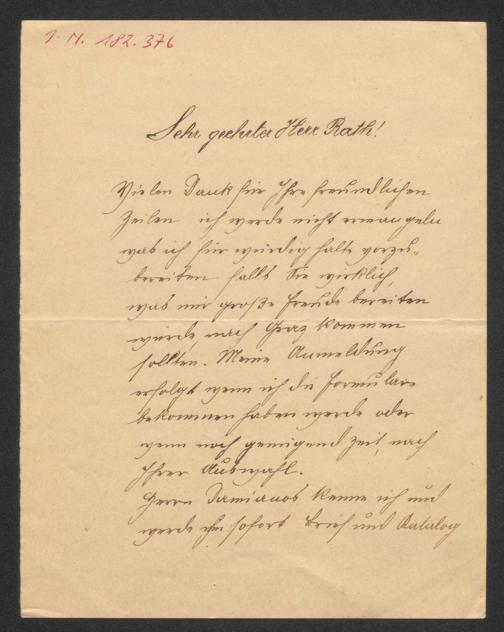 I. N. 182.376
Sehr geehrter Herr Rath!
Vielen Dank für Ihre freundlichen
Zeilen ich werde nicht ermangeln
was ich für würdig halte vorzu-
bereiten falls Sie wirklich,
was mir große Freude bereiten
würde nach Graz kommen
sollten. Meine Anmeldung
erfolgt wenn ich die Formulare
bekommen haben werde oder
wenn noch genügend Zeit, nach
Ihrer Auswahl.
Herrn Damianos kenne ich und
werde ihm sofort Brief und Katalog